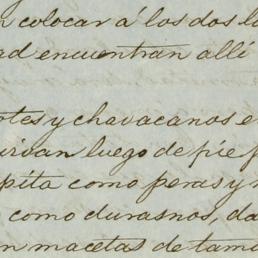 n colocar á los dos la
ad encuentran allí
otes y chavacanos e
irvan luego de pié p
pita como peras y
como durasnos, da
n macetas de tama